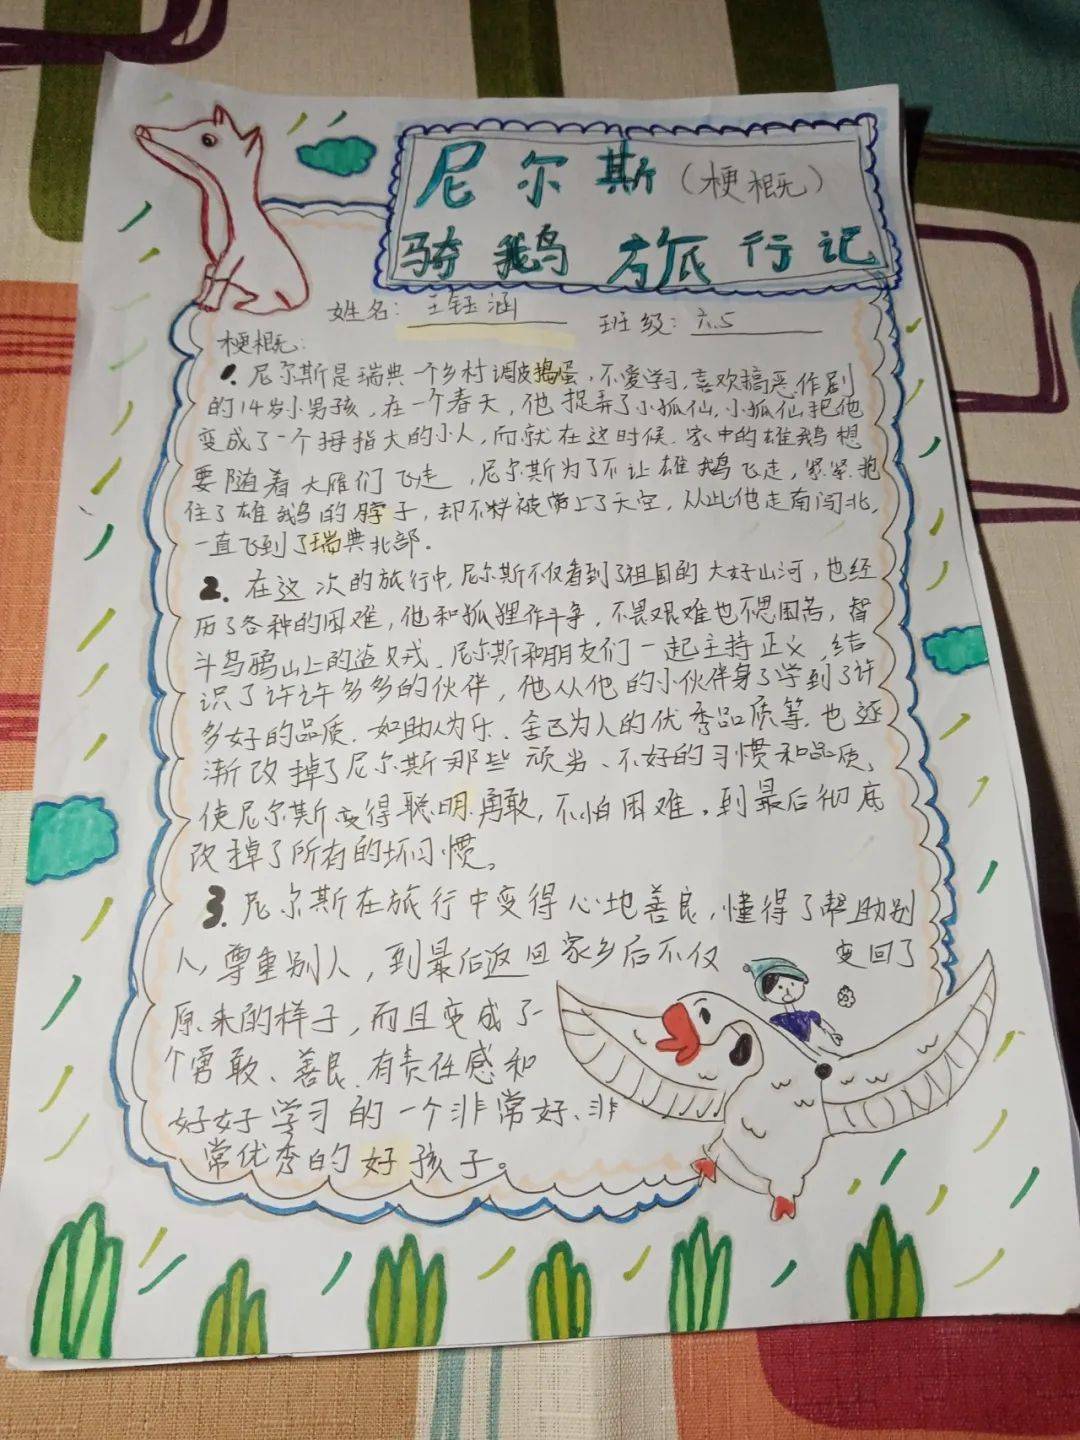 尼尔斯(梗概)
骑鹅旅行记
姓名:王钰涵 班级:六.5
梗概:
1.尼尔斯是瑞典一个乡村调皮捣蛋,不爱学习,喜欢搞恶作剧
的14岁小男孩,在一个春天,他捉弄了小狐仙,小狐仙把他
变成了一个拇指大的小人,而就在这时候.家中的雄鹅想
要随着大雁们飞走,尼尔斯为了不让雄鹅飞走,紧紧抱
住了雄鹅的脖子,却不料被带上了天空,从此他走南闯北,
一直飞到了瑞典北部。
2.在这次的旅行中,尼尔斯不仅看到了祖国的大好山河,也经
历了各种的困难,他和狐狸作斗争,不畏艰难也不思困苦,智
斗乌鸦山上的盗贼.尼尔斯和朋友们一起主持正义,结
识了许许多多的伙伴,他从他的小伙伴身了学到了许
多好的品质.如助人为乐.舍己为人的优秀品质等.也逐
渐改掉了尼尔斯那些顽劣、不好的习惯和品质,
使尼尔斯变得聪明.勇敢,不怕困难,到最后彻底
改掉了所有的坏习惯。
3.尼尔斯在旅行中变得心地善良,懂得了帮助别
人,尊重别人,到最后返回家乡后不仅 变回了
原来的样子,而且变成了一
个勇敢、善良.有责任感和
好好学习的一个非常好、非
常优秀的好孩子。